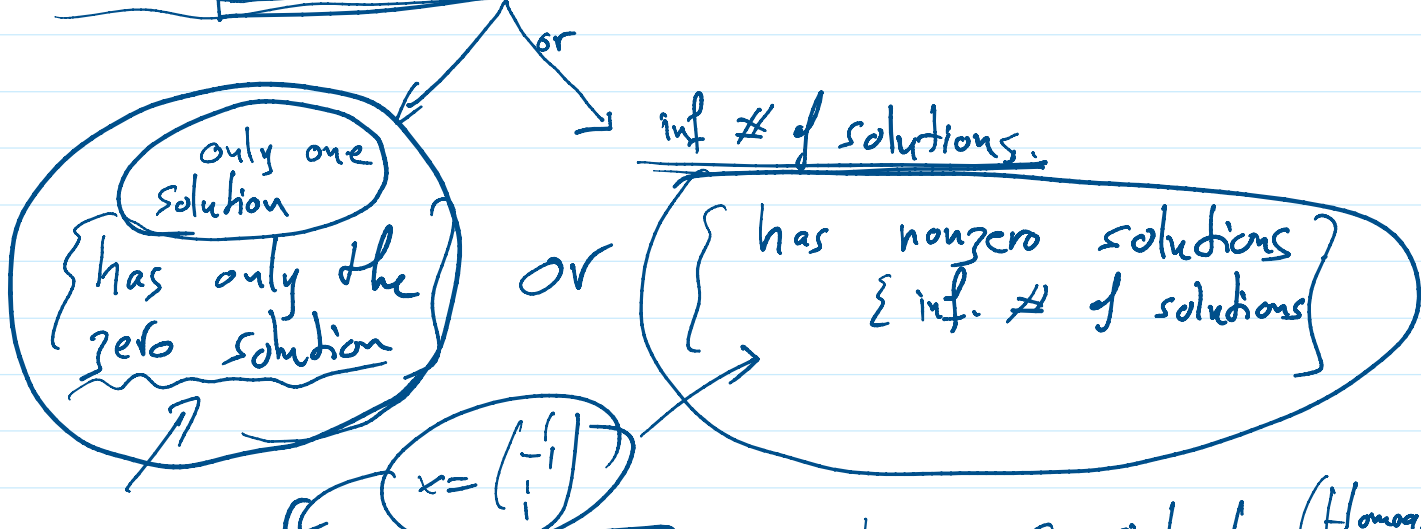 or
inf # of solutions.
only one
solution
has only the
zero solution
or
has nonzero solutions
{ inf. # of solutions
x =
(Homog